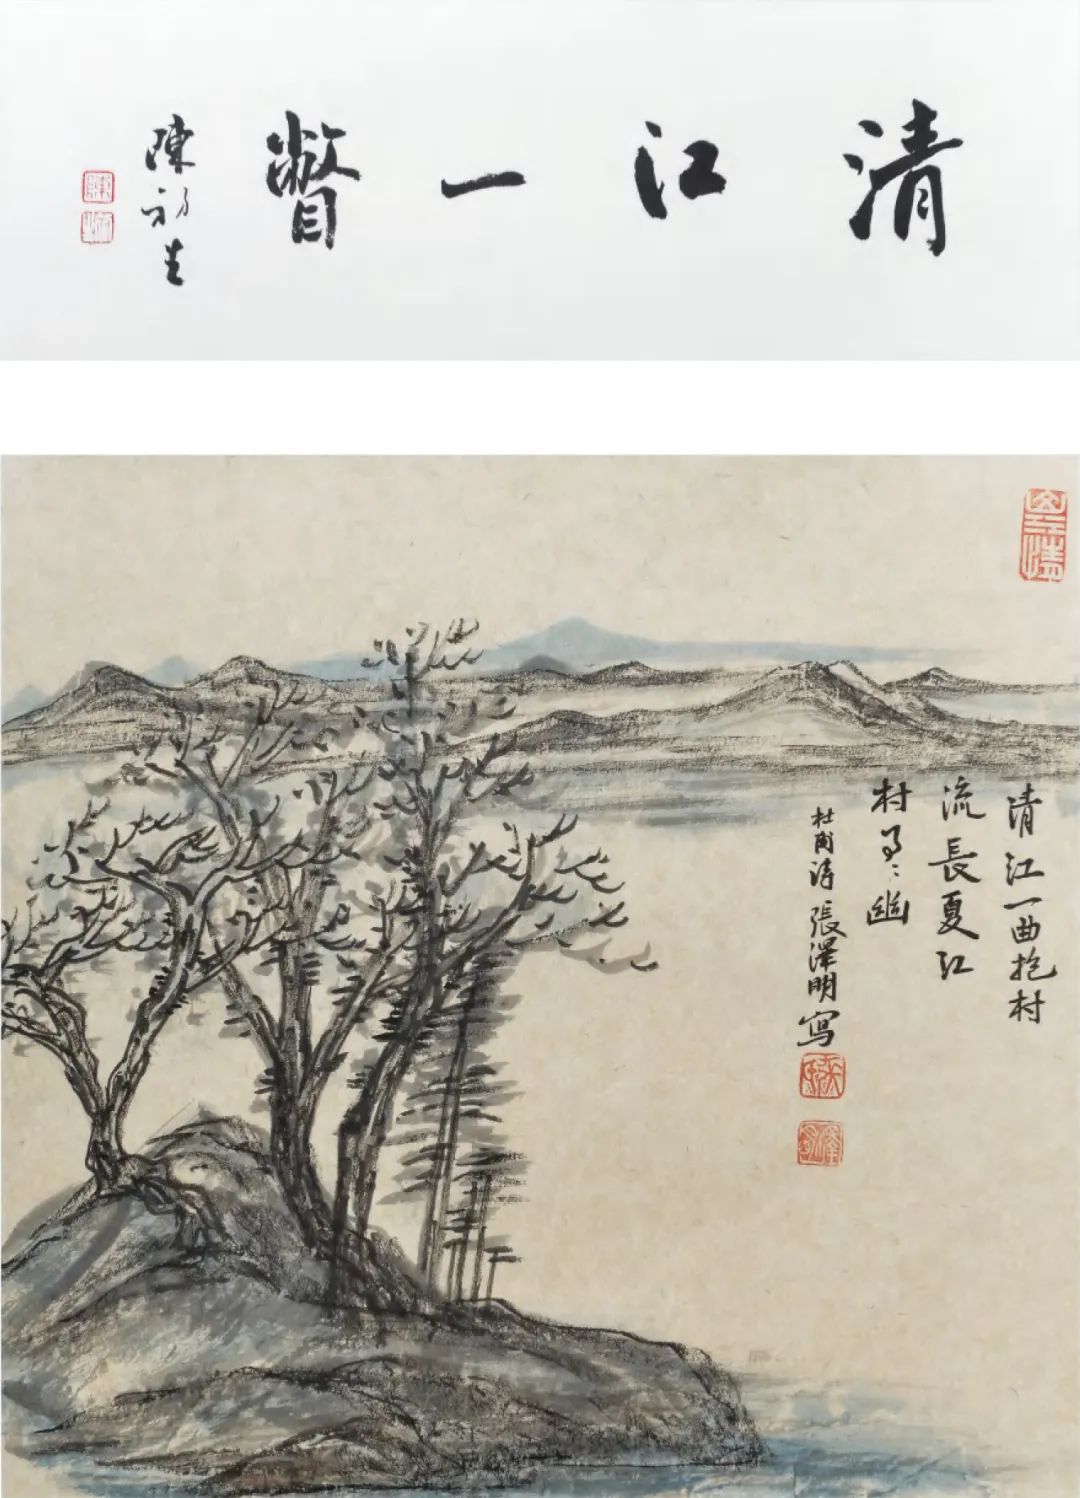 清江一瞥
陳初生
清江一曲抱村
流長夏江
村事々幽
杜甫詩 張澤明寫